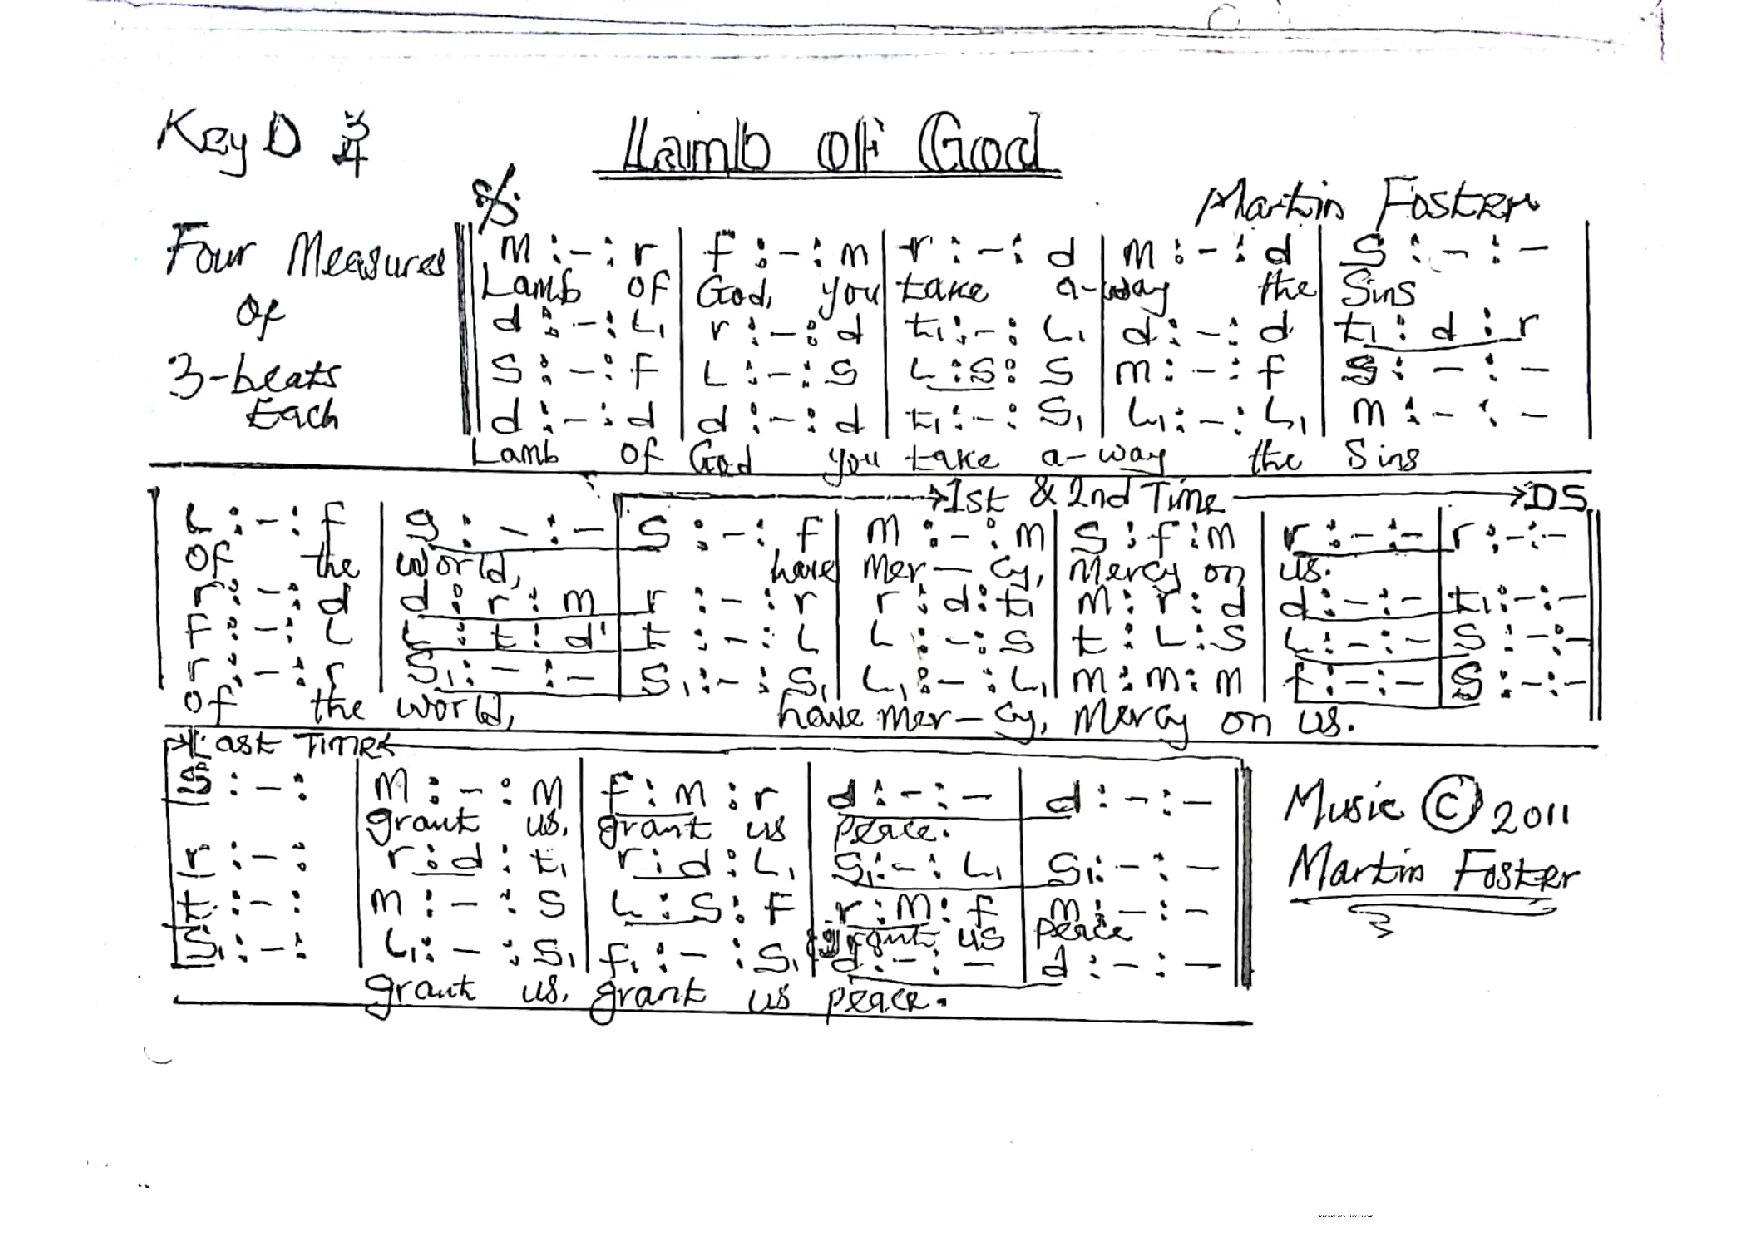 Key D 3/4 Lamb of God
Martin Foster
Four Measures of 3-beats Each
m :-: r | f :-: m | r :-: d | m :-: d | s :-:-
Lamb of God, you take a-way the Sins
d :-: L₁ | r :-: d | t₁ :-: L₁ | d :-: d | t₁ : d : r
s :-: f | L :-: s | L : s : s | m :-: f | s :-:-
d :-: d | d :-: d | t₁ :-: s₁ | L₁ :-: L₁ | m :-:-
Lamb of God you take a-way the Sins
1st & 2nd Time DS
L :-: f | s :-:- | s :-: f | m :-: m | s : f : m | r :-:- | r :-:-
of the world, have mer-cy, mercy on us.
r :-: d | d : r : m | r :-: r | r : d : t₁ | m : r : d | d :-:- | t₁ :-:-
f :-: L | L : t : d' | t :-: L | L :-: s | t : L : s | L :-:- | s :-:-
r :-: r | s₁ :-:- | s₁ :-: s₁ | L₁ :-: L₁ | m : m : m | f :-:- | s :-:-
of the world, have mer-cy, mercy on us.
Last Time
s :-: | m :-: m | f : m : r | d :-:- | d :-:-
grant us, grant us peace.
r :-: | r : d : t₁ | r : d : L₁ | s₁ :-: L₁ | s₁ :-:-
t :-: | m :-: s | L : s : f | r : m : f | m :-:-
grant us peace
s₁ :-: | L₁ :-: s₁ | f₁ :-: s₁ | d :-:- | d :-:-
grant us, grant us peace.
Music © 2011
Martin Foster